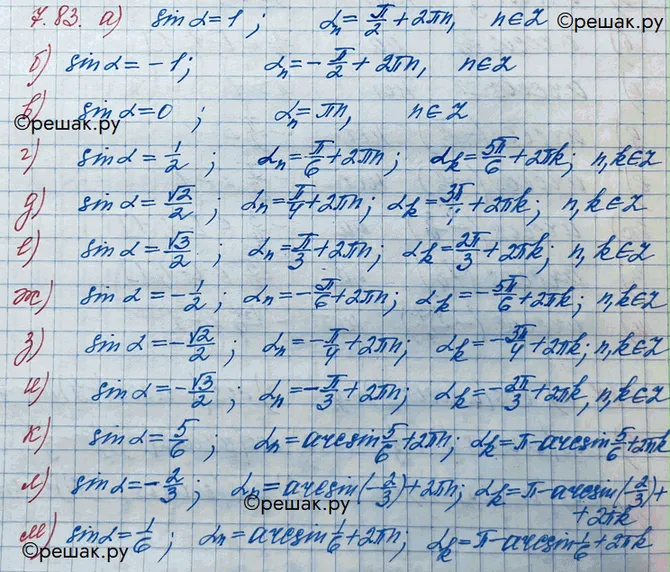 7.83. а) sin α = 1; αₙ = π/2 + 2πn, n∈Z ©решак.ру
б) sin α = -1; αₙ = -π/2 + 2πn, n∈Z
в) sin α = 0; αₙ = πn, n∈Z
©решак.ру
г) sin α = 1/2; αₙ = π/6 + 2πn; αₖ = 5π/6 + 2πk; n,k∈Z
д) sin α = √2/2; αₙ = π/4 + 2πn; αₖ = 3π/4 + 2πk; n,k∈Z
©решак.ру
е) sin α = √3/2; αₙ = π/3 + 2πn; αₖ = 2π/3 + 2πk; n,k∈Z
ж) sin α = -1/2; αₙ = -π/6 + 2πn; αₖ = -5π/6 + 2πk; n,k∈Z
©решак.ру
з) sin α = -√2/2; αₙ = -π/4 + 2πn; αₖ = -3π/4 + 2πk; n,k∈Z
и) sin α = -√3/2; αₙ = -π/3 + 2πn; αₖ = -2π/3 + 2πk, n,k∈Z
©решак.ру
к) sin α = 5/6; αₙ = arcsin 5/6 + 2πn; αₖ = π - arcsin 5/6 + 2πk
л) sin α = -2/3; αₙ = arcsin(-2/3) + 2πn; αₖ = π - arcsin(-2/3) +
+ 2πk
м) sin α = 1/6; αₙ = arcsin 1/6 + 2πn; αₖ = π - arcsin 1/6 + 2πk
©решак.ру ©решак.ру